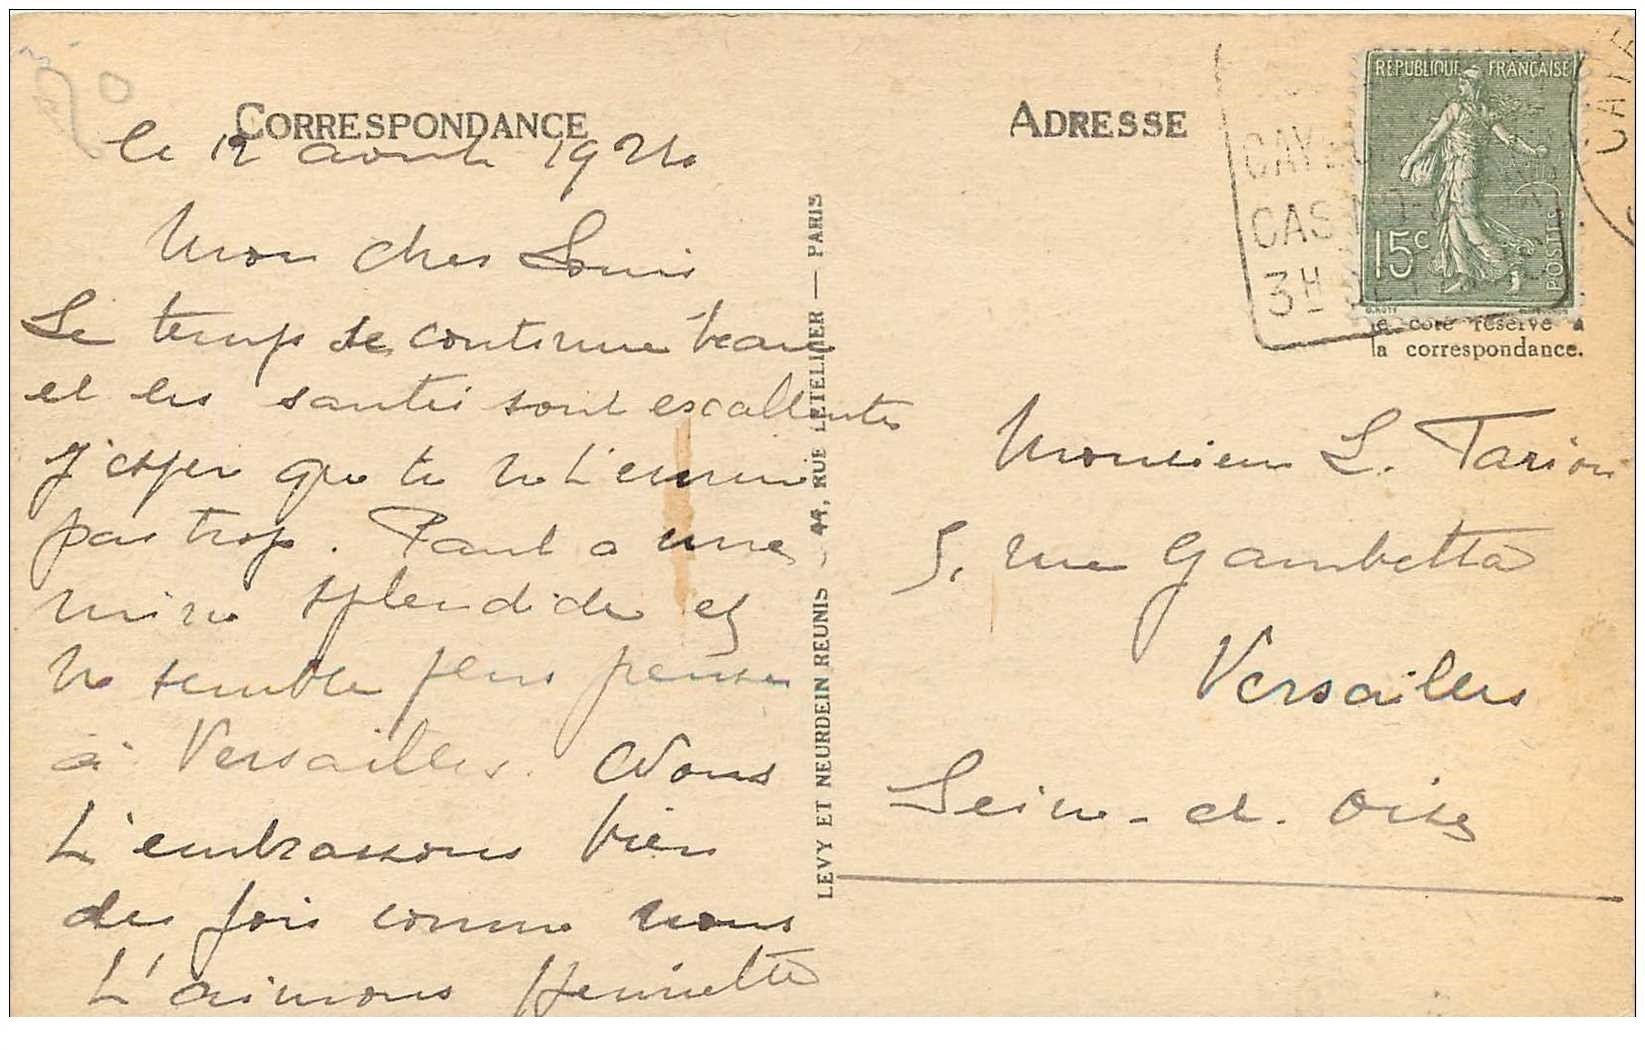 CORRESPONDANCE
le 12 août 1924
Mon cher Louis
Le temps se continue beau
et les santés sont excellentes
J'espère que tu ne t'ennuie
pas trop. Paul a une
mine splendide et
ne semble plus penser
à Versailles. Nous
t'embrassons bien
des fois comme nous
t'aimons Henriette
LEVY ET NEURDEIN REUNIS, 44, RUE LETELLIER — PARIS
ADRESSE
REPUBLIQUE FRANÇAISE
15c
POSTES
CAYEUX
CAS
3H
le côté réservé à
la correspondance.
Monsieur L. Tarion
5, rue Gambetta
Versailles
Seine-et-Oise